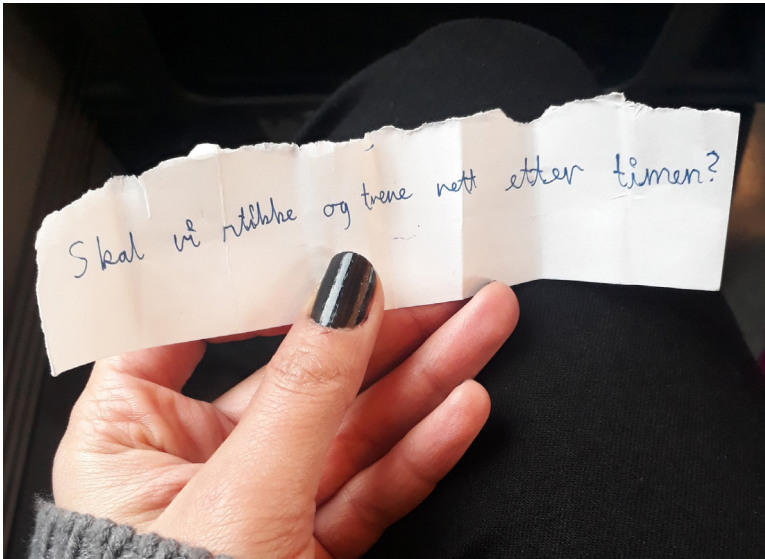 Skal vi stikke og trene rett etter timen?